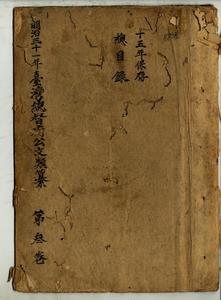 十五年保存
總目錄
明治三十一年臺灣總督府公文類纂 第叁卷